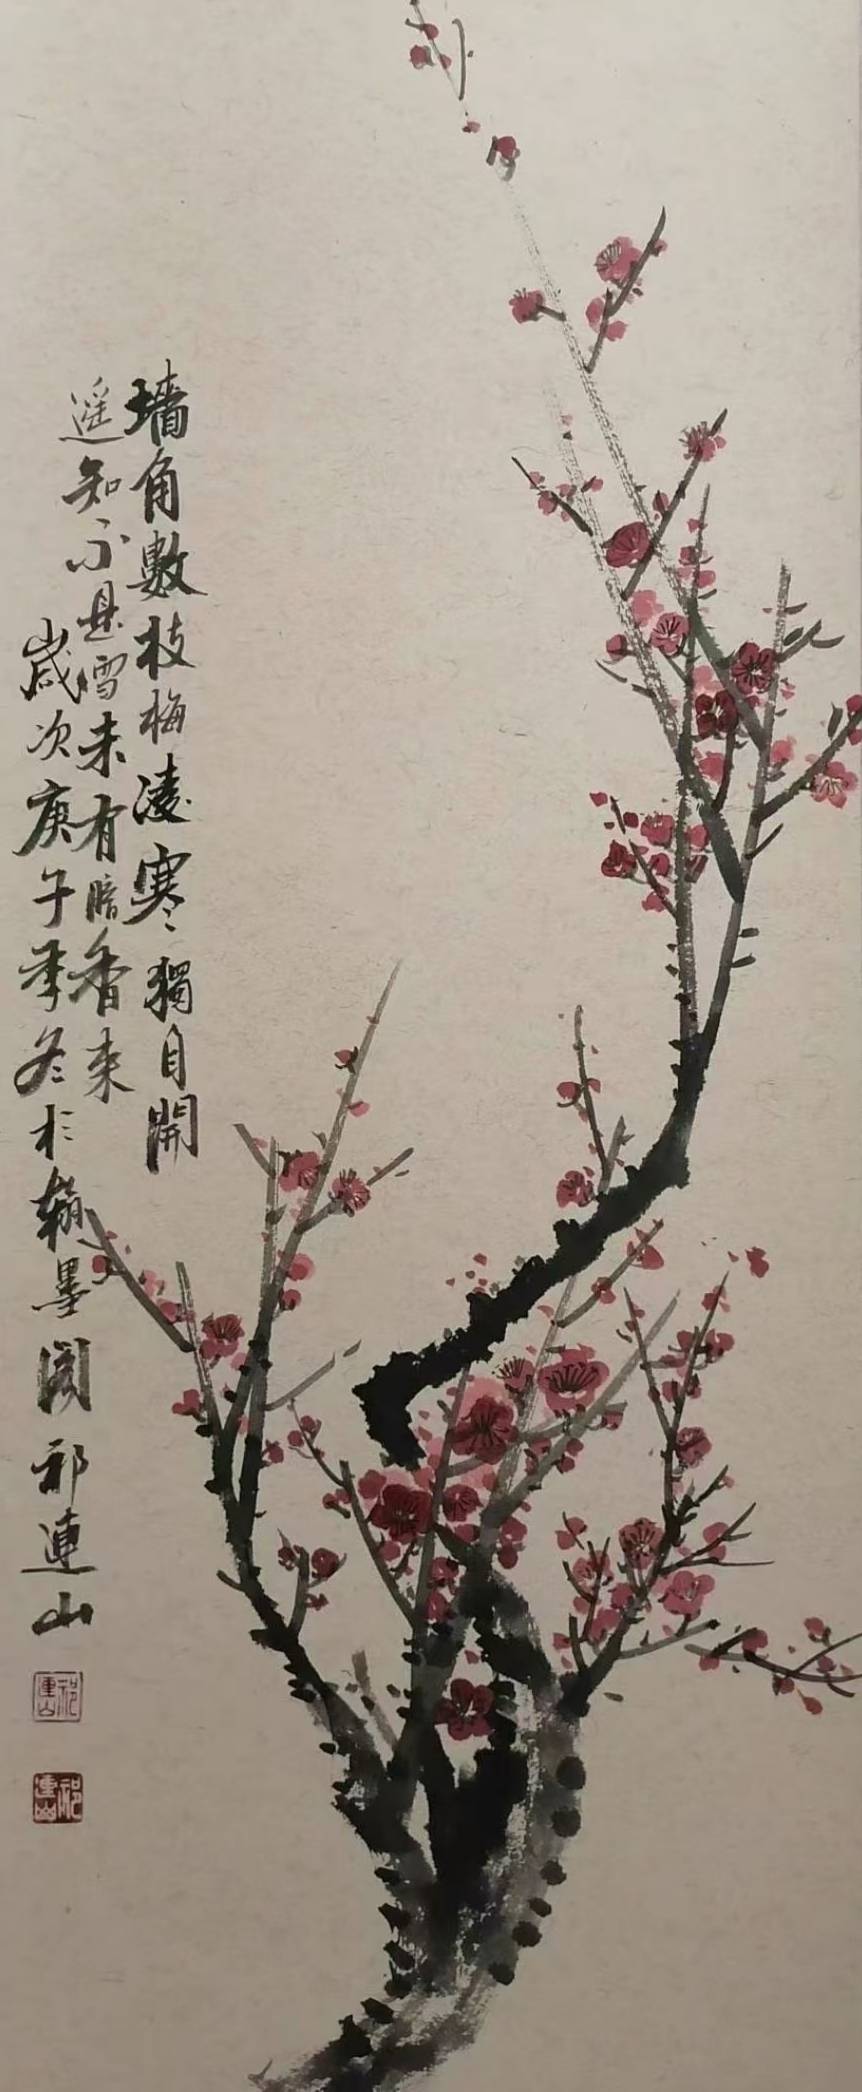 墻角數枝梅凌寒獨自開
遥知不是雪未有暗香来
歲次庚子季冬於翰墨阁祁連山
祁連山
祁連山